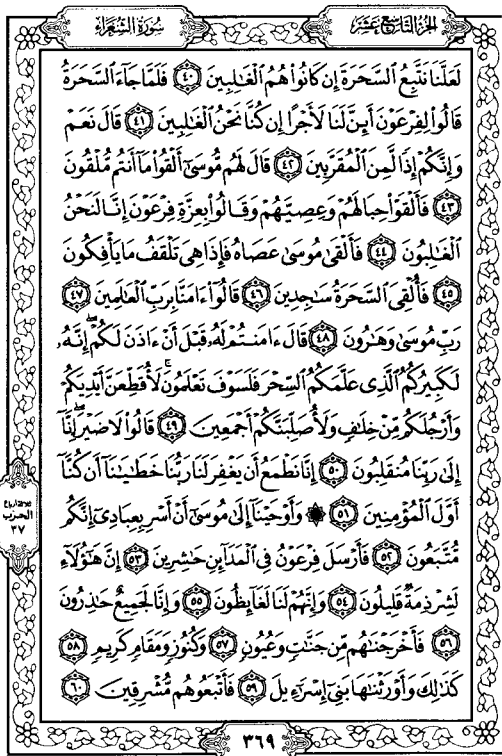 سُورَةُ الشُّعَرَاءِ
الجُزْءُ التَّاسِعَ عَشَرَ
لَعَلَّنَا نَتَّبِعُ السَّحَرَةَ إِن كَانُوا هُمُ الْغَالِبِينَ ٤٠ فَلَمَّا جَاءَ السَّحَرَةُ
قَالُوا لِفِرْعَوْنَ أَئِنَّ لَنَا لَأَجْرًا إِن كُنَّا نَحْنُ الْغَالِبِينَ ٤١ قَالَ نَعَمْ
وَإِنَّكُمْ إِذًا لَّمِنَ الْمُقَرَّبِينَ ٤٢ قَالَ لَهُم مُّوسَىٰ أَلْقُوا مَا أَنتُم مُّلْقُونَ
٤٣ فَأَلْقَوْا حِبَالَهُمْ وَعِصِيَّهُمْ وَقَالُوا بِعِزَّةِ فِرْعَوْنَ إِنَّا لَنَحْنُ
الْغَالِبُونَ ٤٤ فَأَلْقَىٰ مُوسَىٰ عَصَاهُ فَإِذَا هِيَ تَلْقَفُ مَا يَأْفِكُونَ
٤٥ فَأُلْقِيَ السَّحَرَةُ سَاجِدِينَ ٤٦ قَالُوا ءَامَنَّا بِرَبِّ الْعَالَمِينَ ٤٧
رَبِّ مُوسَىٰ وَهَارُونَ ٤٨ قَالَ ءَامَنتُمْ لَهُۥ قَبْلَ أَنْ ءَاذَنَ لَكُمْ إِنَّهُۥ
لَكَبِيرُكُمُ الَّذِي عَلَّمَكُمُ السِّحْرَ فَلَسَوْفَ تَعْلَمُونَ لَأُقَطِّعَنَّ أَيْدِيَكُمْ
وَأَرْجُلَكُم مِّنْ خِلَافٍ وَلَأُصَلِّبَنَّكُمْ أَجْمَعِينَ ٤٩ قَالُوا لَا ضَيْرَ إِنَّا
إِلَىٰ رَبِّنَا مُنقَلِبُونَ ٥٠ إِنَّا نَطْمَعُ أَن يَغْفِرَ لَنَا رَبُّنَا خَطَايَانَا أَن كُنَّا
أَوَّلَ الْمُؤْمِنِينَ ٥١ ۞ وَأَوْحَيْنَا إِلَىٰ مُوسَىٰ أَنْ أَسْرِ بِعِبَادِي إِنَّكُم
مُّتَّبَعُونَ ٥٢ فَأَرْسَلَ فِرْعَوْنُ فِي الْمَدَائِنِ حَاشِرِينَ ٥٣ إِنَّ هَٰؤُلَاءِ
لَشِرْذِمَةٌ قَلِيلُونَ ٥٤ وَإِنَّهُمْ لَنَا لَغَائِظُونَ ٥٥ وَإِنَّا لَجَمِيعٌ حَاذِرُونَ
٥٦ فَأَخْرَجْنَاهُم مِّن جَنَّاتٍ وَعُيُونٍ ٥٧ وَكُنُوزٍ وَمَقَامٍ كَرِيمٍ ٥٨
كَذَٰلِكَ وَأَوْرَثْنَاهَا بَنِي إِسْرَٰءِيلَ ٥٩ فَأَتْبَعُوهُم مُّشْرِقِينَ ٦٠
الحزب
٣٧
٣٦٩